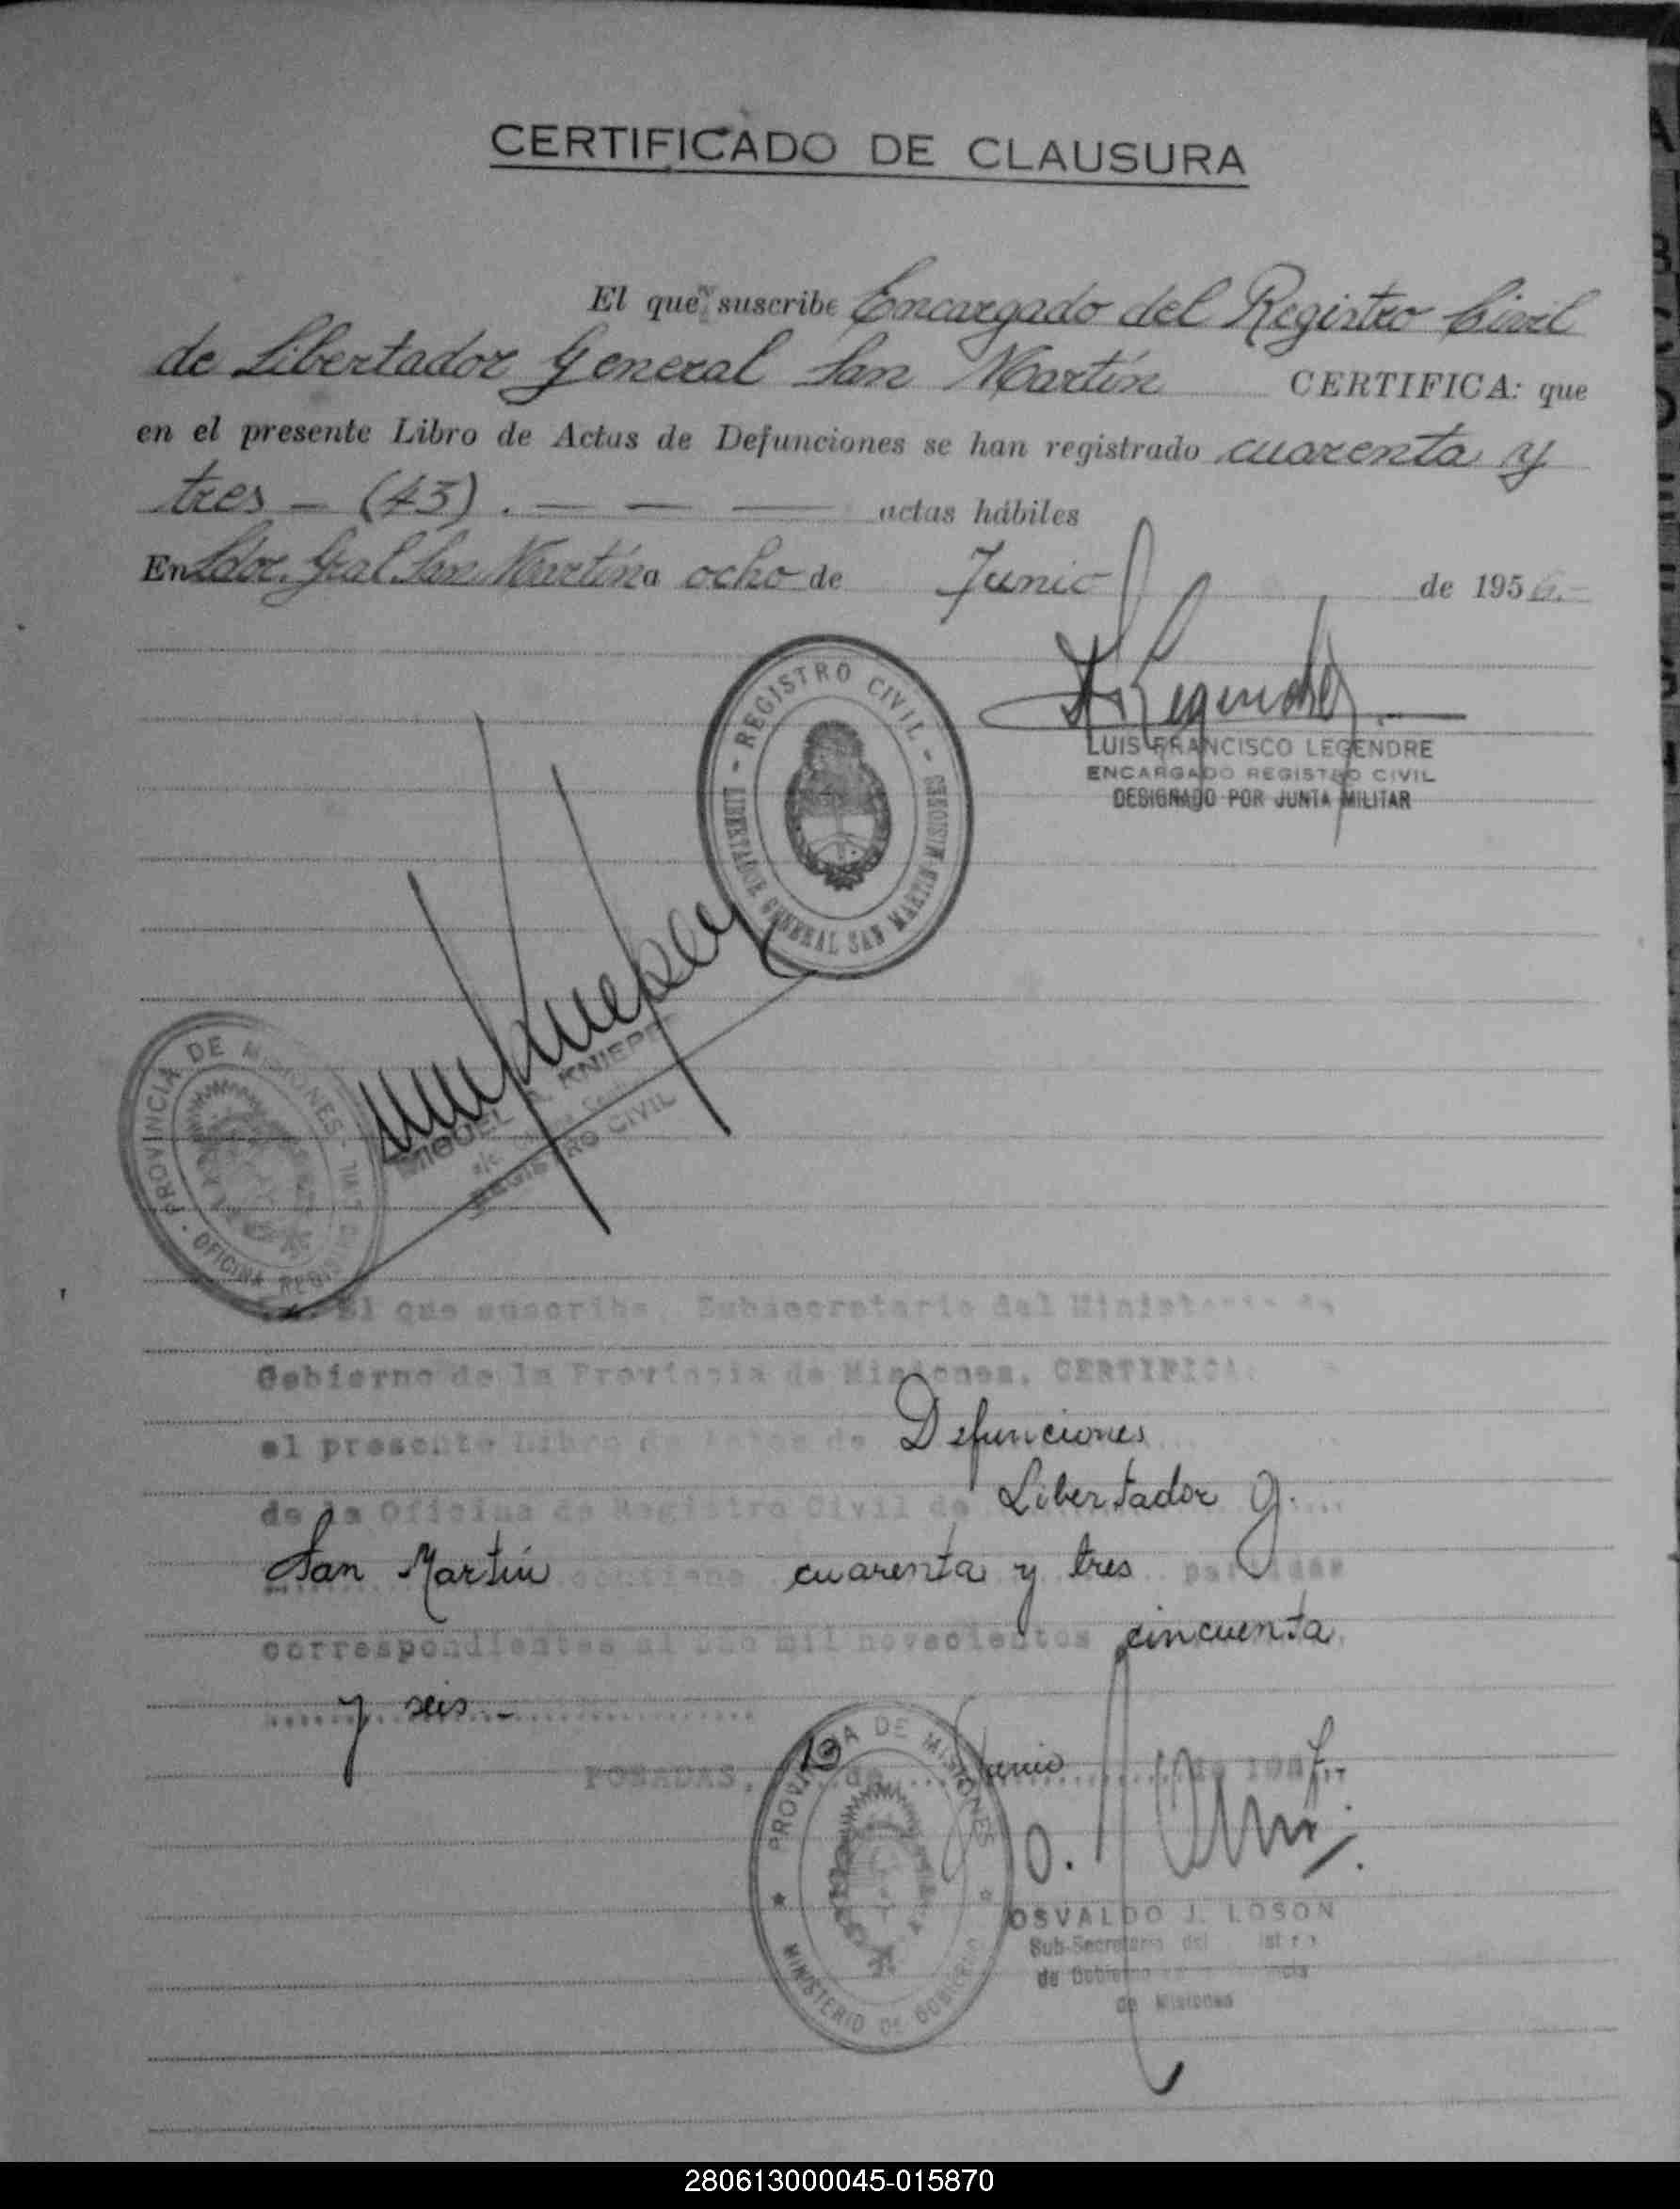 CERTIFICADO DE CLAUSURA
El que suscribe Encargado del Registro Civil
de Libertador General San Martín CERTIFICA: que
en el presente Libro de Actas de Defunciones se han registrado cuarenta y
tres - (43). — — — actas hábiles
En Ldor. Gral San Martín a ocho de Junio de 1956.-
REGISTRO CIVIL
LIBERTADOR GENERAL SAN MARTIN-MISIONES
LUIS FRANCISCO LEGENDRE
ENCARGADO REGISTRO CIVIL
DESIGNADO POR JUNTA MILITAR
PROVINCIA DE MISIONES
OFICINA REGISTRO
MIGUEL A. KNIEPE
REGISTRO CIVIL
El que suscribe, Subsecretario del Ministerio de
Gobierno de la Provincia de Misiones, CERTIFICA:
el presente Libro de Actas de Defunciones
de la Oficina de Registro Civil de Libertador G.
San Martín contiene cuarenta y tres partidas
correspondientes al año mil novecientos cincuenta
y seis.-
POSADAS, 13 de Junio de 1957.-
PROVINCIA DE MISIONES
MINISTERIO DE GOBIERNO
OSVALDO J. LOSON
Sub-Secretario del
de Gobierno
de Misiones
280613000045-015870